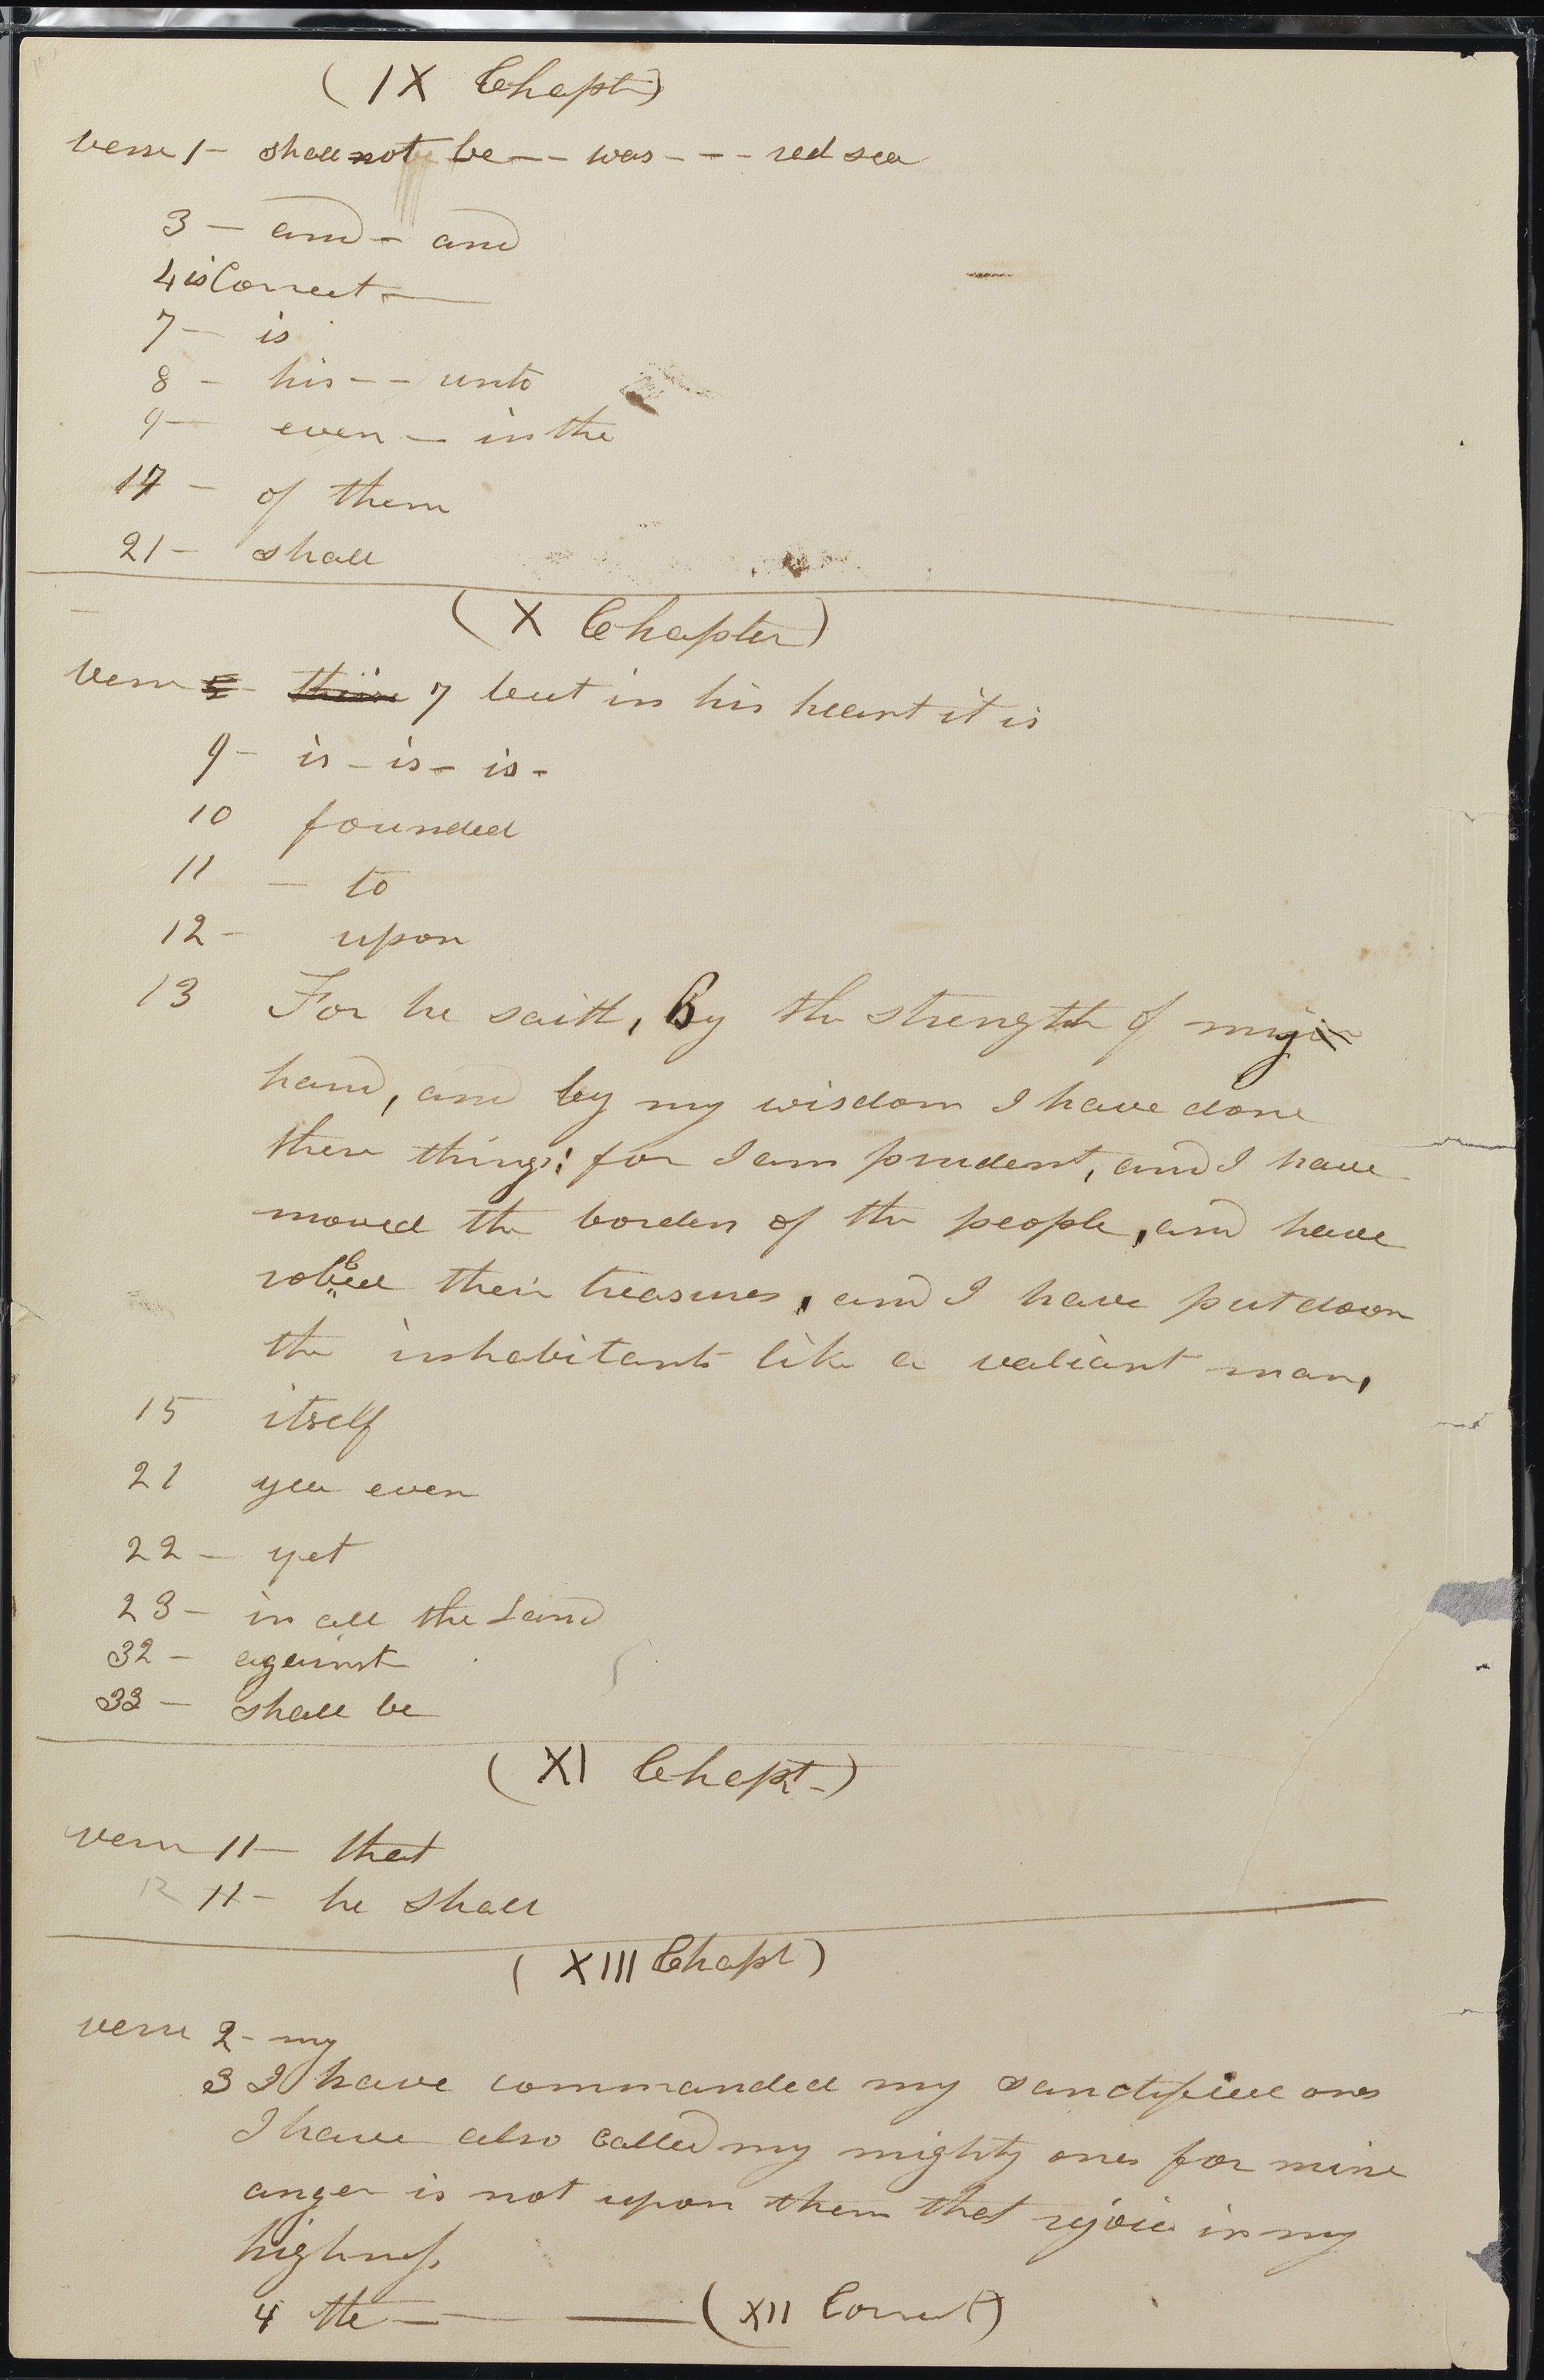 (IX Chapt)
verse 1- shall not be -- was --- red sea
3 - and - and
4 is Correct -
7 - is
8 - his -- unto
9 - even - in the
17 - of them
21 - shall
(X Chapter)
verse 5- 7 but in his heart it is
9- is - is - is -
10 founded
11 - to
12 - upon
13 For he saith, By the strength of my
hand, and by my wisdom I have done
these things; for I am prudent, and I have
moved the borders of the people, and have
robbed their treasures, and I have put down
the inhabitants like a valiant man,
15 itself
21 yea even
22 - yet
23 - in all the Land
32 - against
33 - shall be
(XI Chapt-)
verse 11- that
12 11- he shall
(XIII Chapt)
verse 2- my
3 I have commanded my sanctified ones
I have also called my mighty ones for mine
anger is not upon them that rejoice in my
highness.
4 the - (XII Correct)